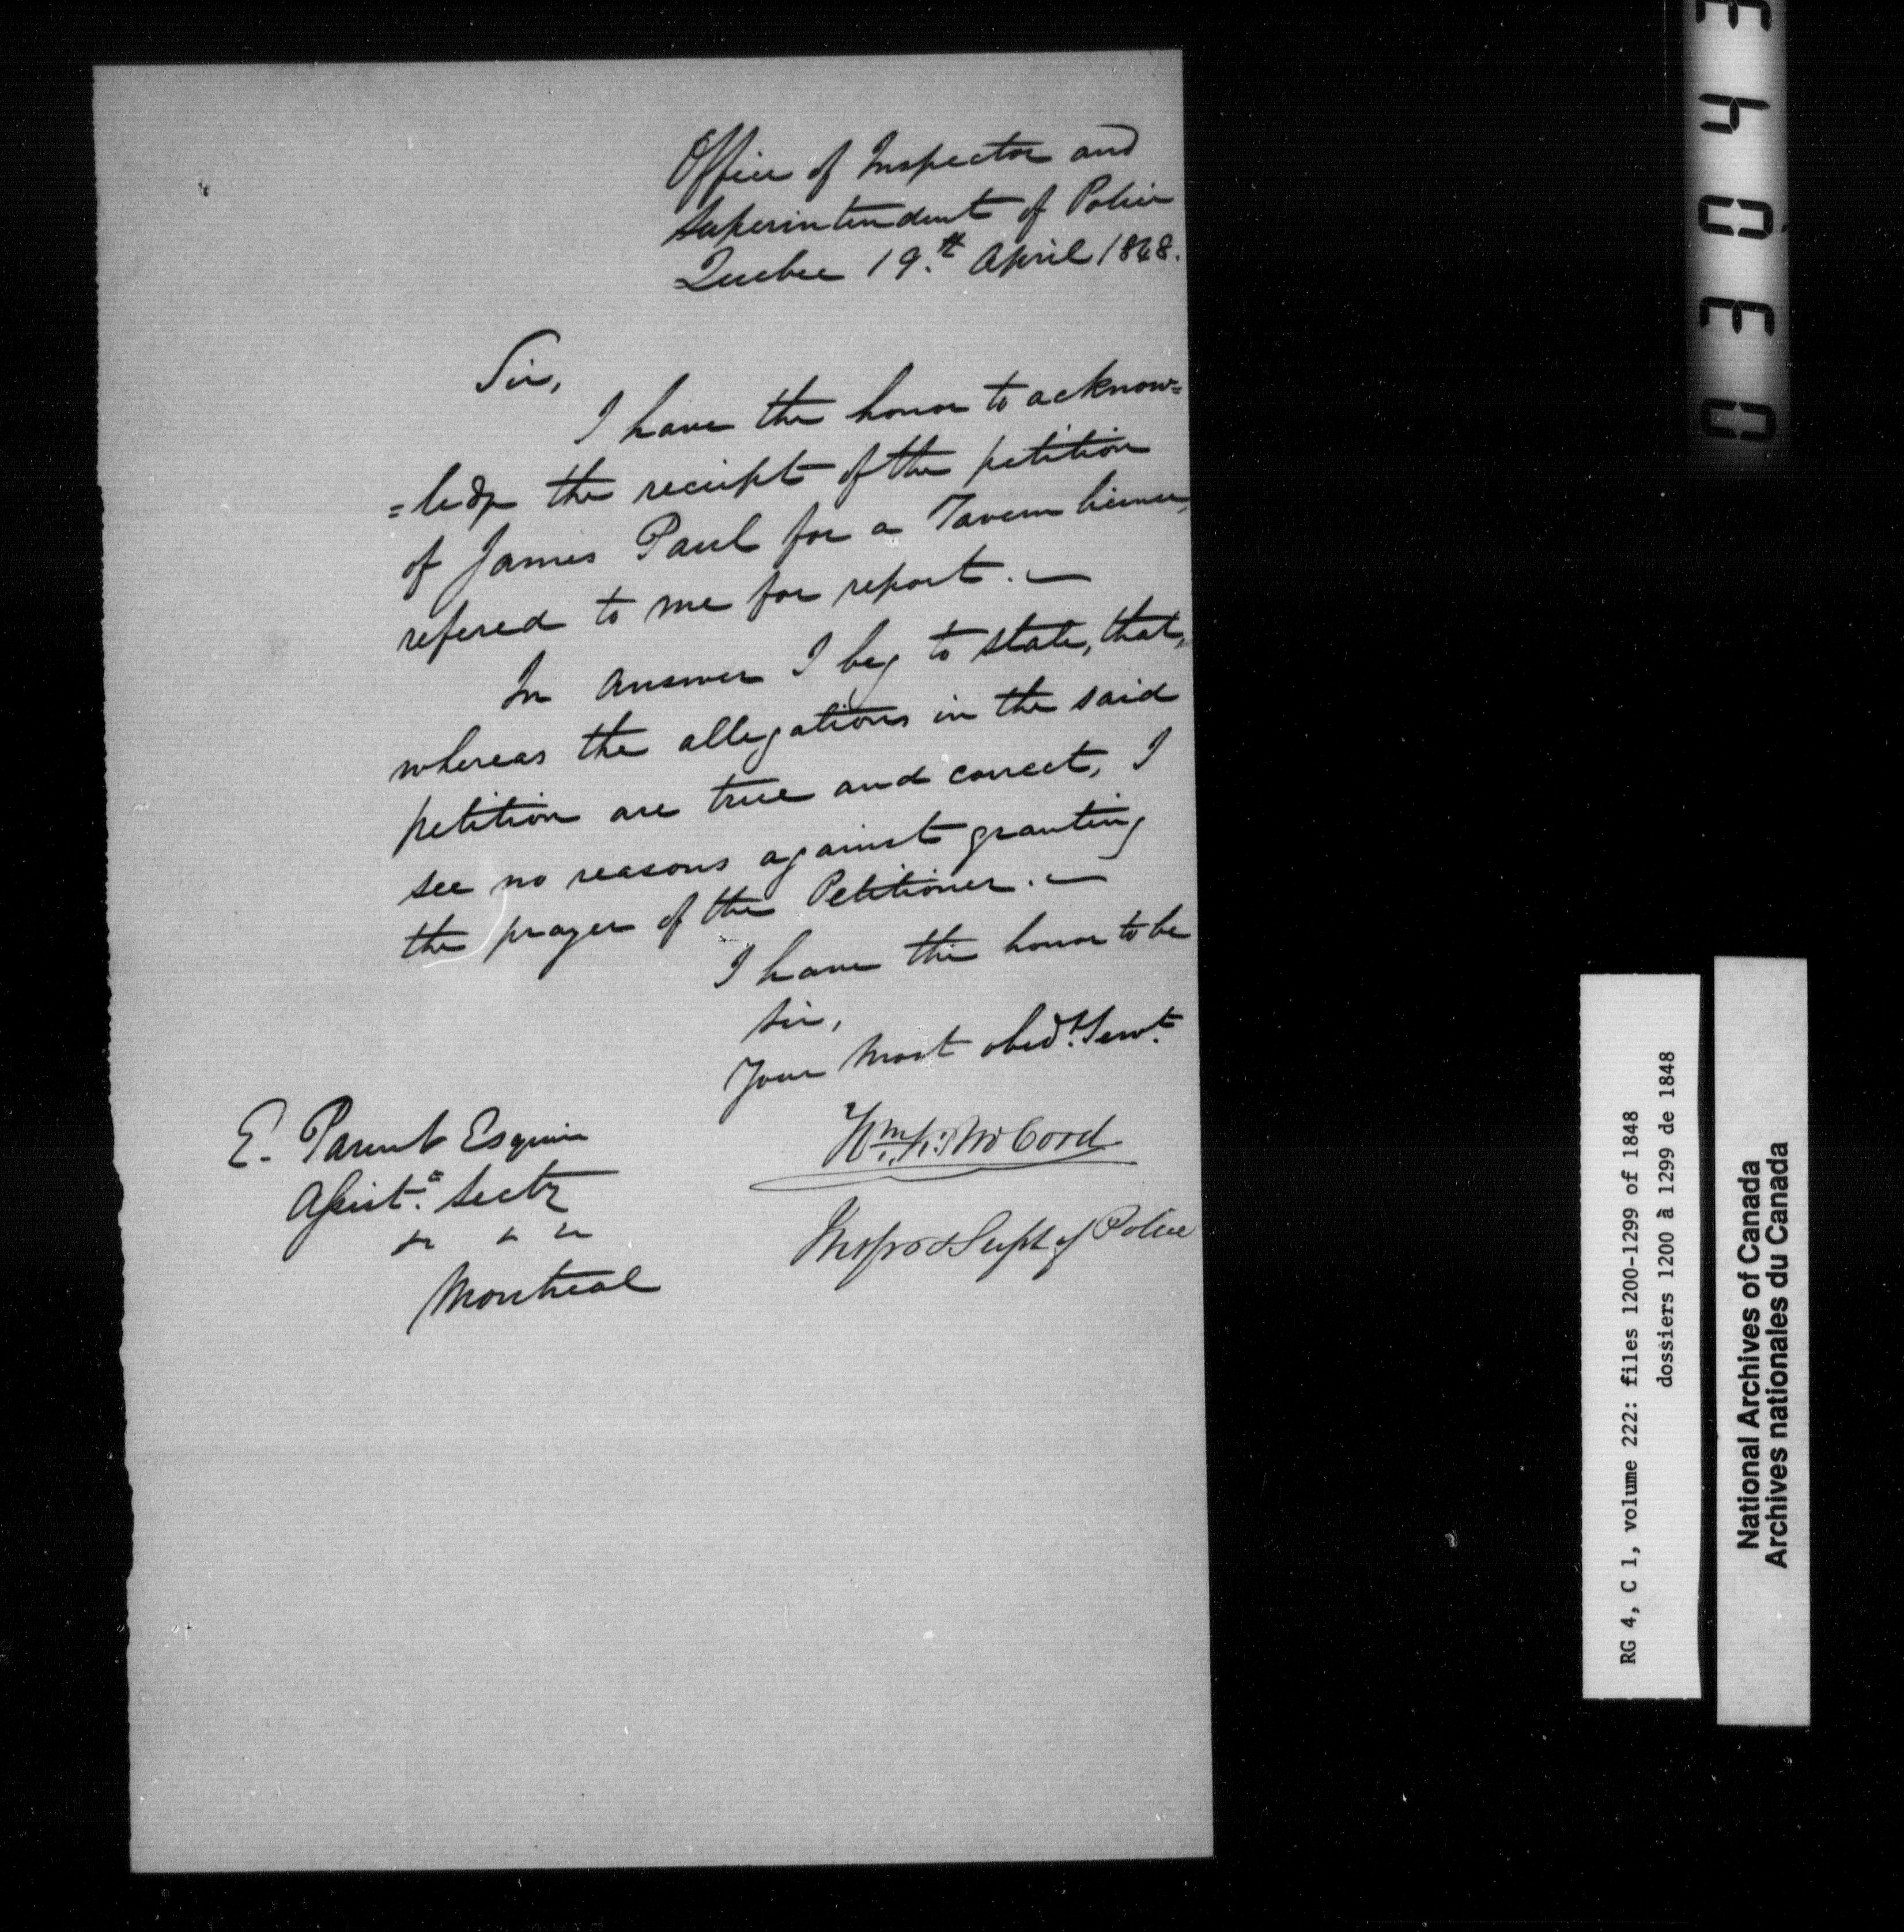 Office of Inspector and
Superintendent of Police
Quebec 19.th April 1848.
Sir,
I have the honor to acknow=
=ledge the receipt of the petition
of James Paul for a Tavern license,
refered to me for report. —
In answer I beg to state, that,
whereas the allegations in the said
petition are true and correct, I
see no reasons against granting
the prayer of the Petitioner. —
I have the honor to be
Sir,
Your most obedt. Servt.
Wm. K: McCord
Inspr & Supt of Police
E. Parent Esquire
Assist.t Secty
" " "
Montreal
03043
RG 4, C 1, volume 222: files 1200-1299 of 1848
dossiers 1200 à 1299 de 1848
National Archives of Canada
Archives nationales du Canada